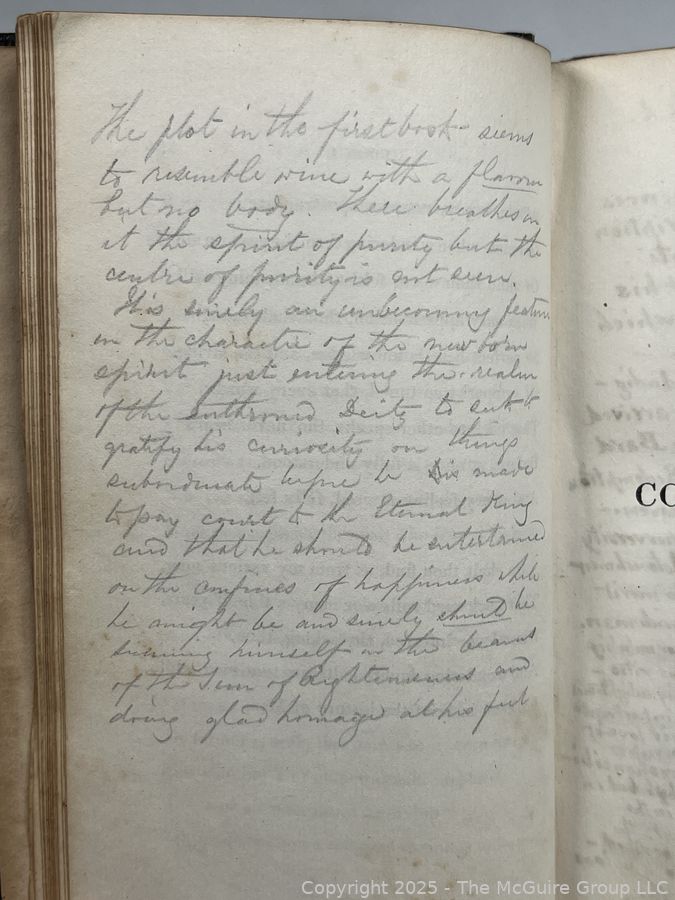 The plot in the first book seems
to resemble wine with a flavour
but no body. There breathes in
it the spirit of purity but the
centre of purity is not seen.
It is surely an unbecoming feature
in the character of the new born
spirit just entering the realm
of the enthroned Deity to seek to
gratify his curiosity on things
subordinate before he is made
to pay court to the Eternal King
and that he should be entertained
on the confines of happiness while
he might be and surely should be
sunning himself in the beams
of the Sun of Righteousness and
doing glad homage at his feet
CO
Copyright 2025 - The McGuire Group LLC